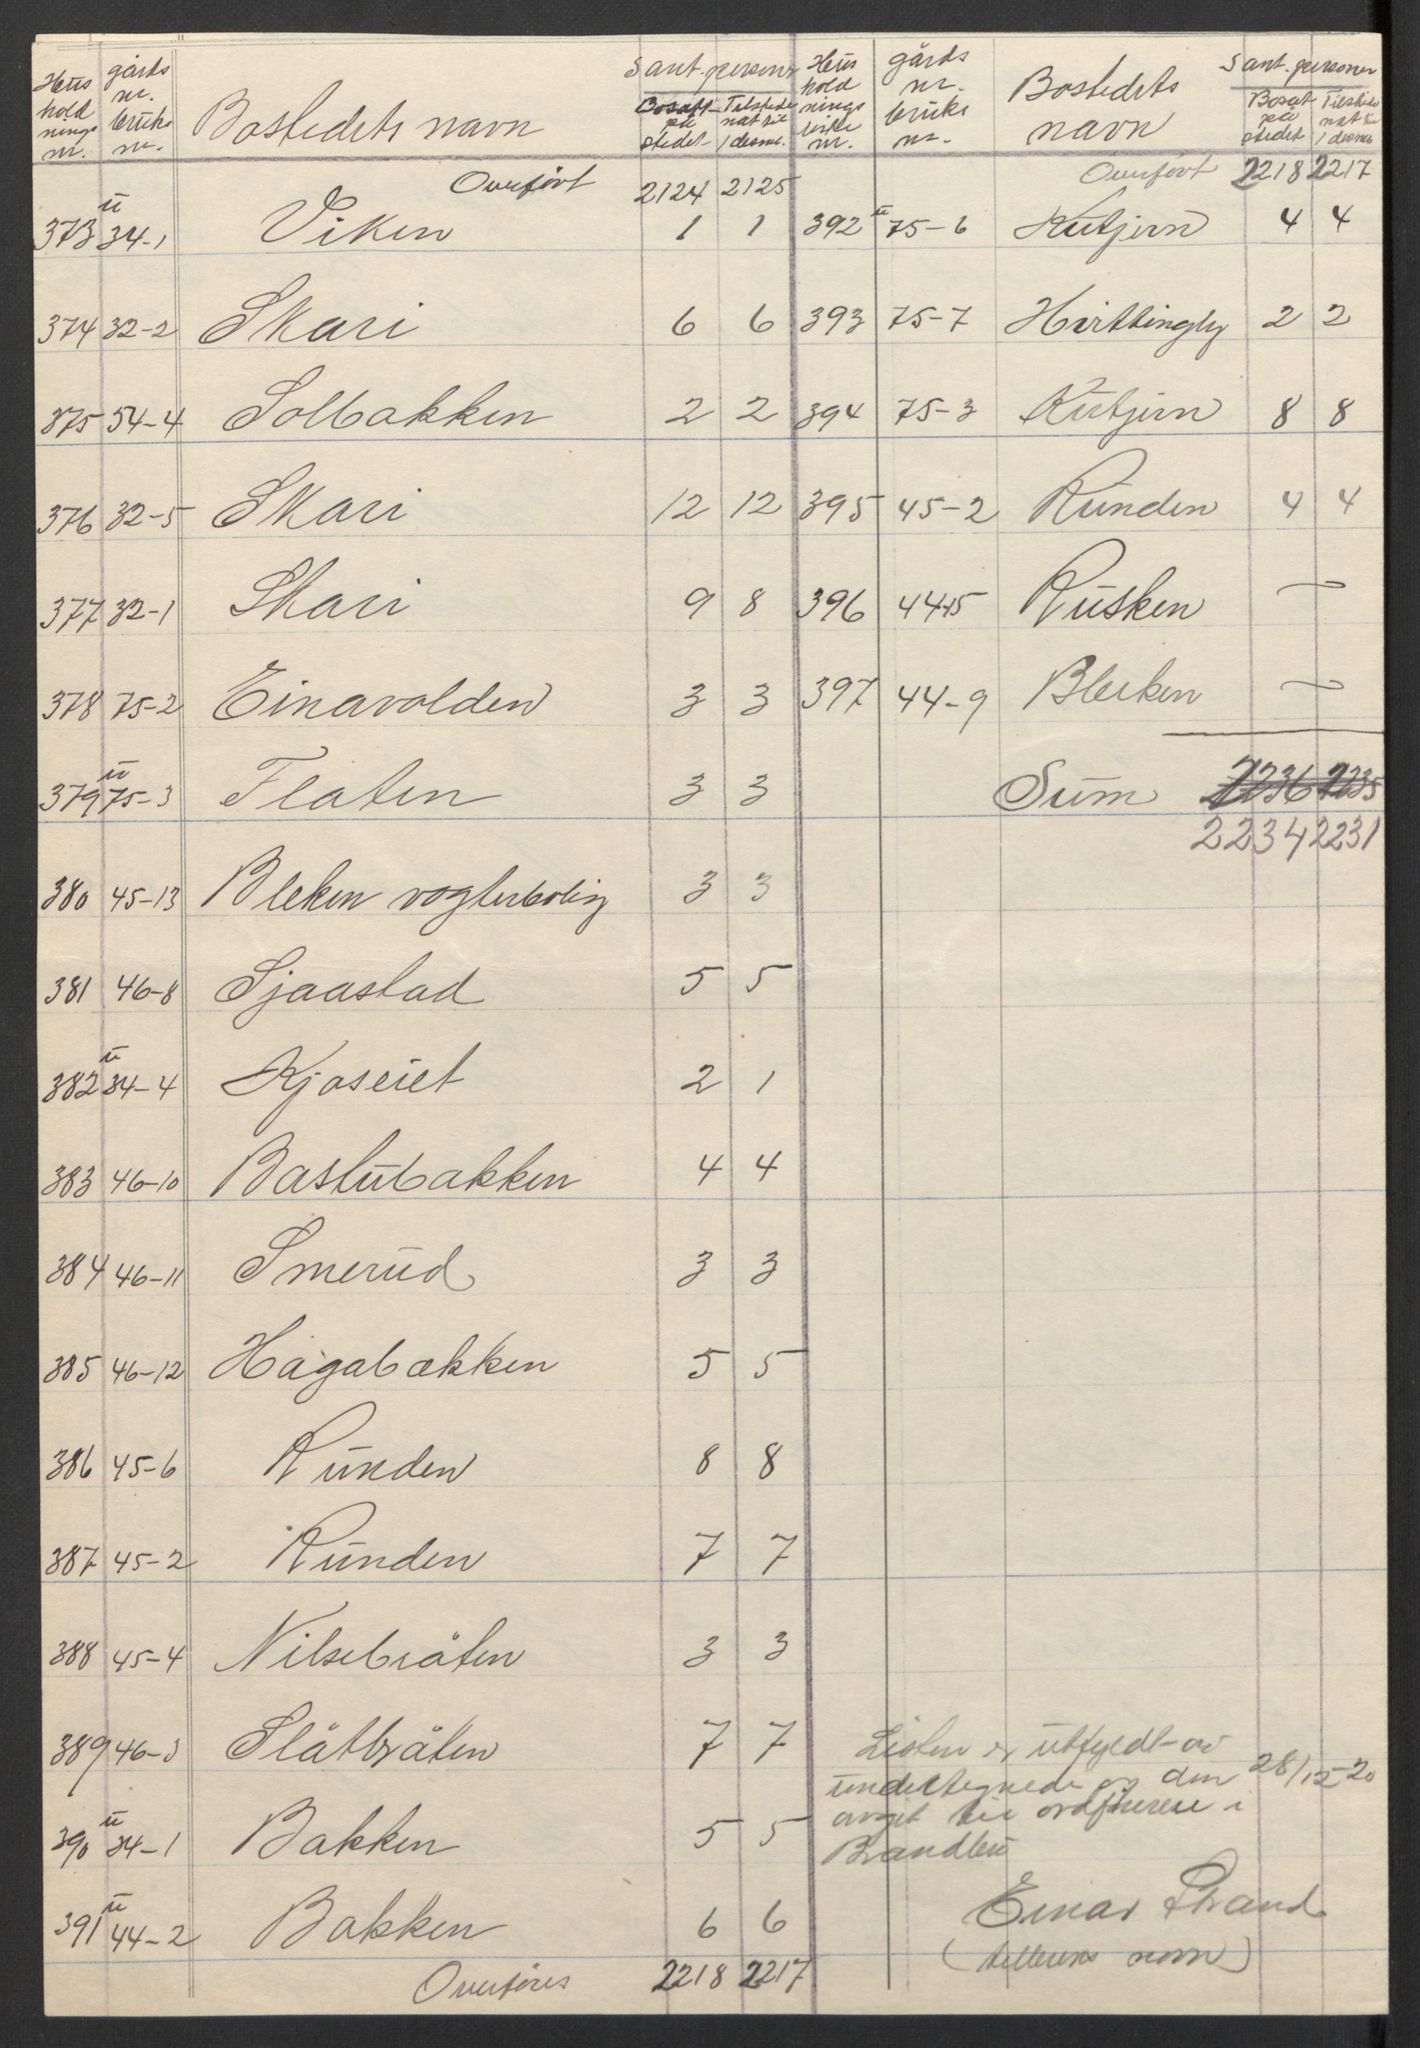 Hus hold nings nr. | gårds nr. bruks nr. | Bostedets navn | S ant. personer | Bosatt på stedet | Tilstede nat til 1 decmb.
Overført 2124 2125
373 u 34-1 Viken 1 1
374 32-2 Skari 6 6
375 54-4 Solbakken 2 2
376 32-5 Skari 12 12
377 32-1 Skari 9 8
378 75-2 Einavolden 3 3
379 u 75-3 Flaten 3 3
380 45-13 Bleken vogterbolig 3 3
381 46-8 Sjaastad 5 5
382 u 34-4 Kjoseiet 2 1
383 46-10 Bastubakken 4 4
384 46-11 Smerud 3 3
385 46-12 Hagabakken 5 5
386 45-6 Runden 8 8
387 45-2 Runden 7 7
388 45-4 Nilsebråten 3 3
389 46-3 Slåtbråten 7 7
390 u 34-1 Bakken 5 5
391 u 44-2 Bakken 6 6
Overføres 2218 2217
Hus hold nings liste nr. | gårds nr. bruks nr. | Bostedets navn | S ant. personer | Bosat på stedet | Tilstede nat til 1 decmb.
Overført 2218 2217
392 u 75-6 Kutjern 4 4
393 75-7 Hvittingby 2 2
394 75-3 Kutjern 8 8
395 45-2 Runden 4 4
396 44-15 Rusken —
397 44-9 Bleiken —
Sum 2236 2235
2234 2231
Listen er utfyldt av
undertegnede og den 28/12-20
avgit til ordføreren i
Brandbu
Einar Strand
(tellerens navn)